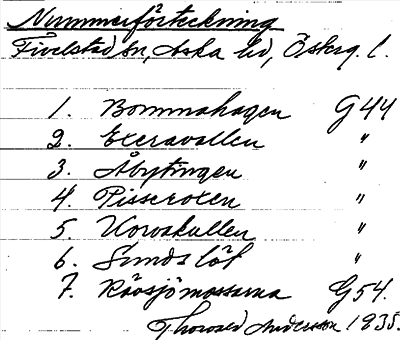 Nummerförteckning
Fivelstad sn, Aska hd, Österg. l.
1. Bommahagen G 44
2. Exeravallen "
3. Åbytingen "
4. Pisseroxen "
5. Korvakullen "
6. Sunds löt "
7. Råösjömossarna G 54.
Thorvald Andersson 1935.